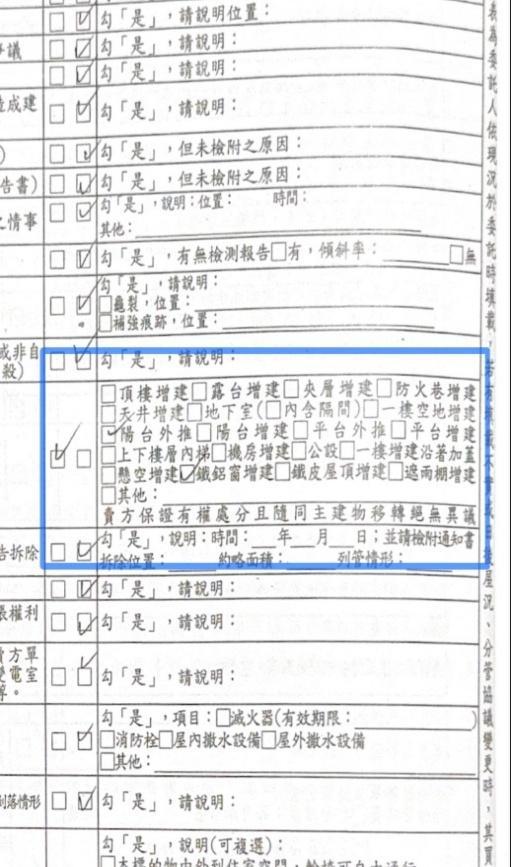 勾「是」，請說明位置：
議 勾「是」，請說明：
勾「是」，請說明：
造成建 勾「是」，請說明：
) 勾「是」，但未檢附之原因：
告書) 勾「是」，但未檢附之原因：
之情事 勾「是」，說明：位置： 時間：
其他：
勾「是」，有無檢測報告□有，傾斜率： □無
勾「是」，請說明：
□龜裂，位置：
□補強痕跡，位置：
或非自 勾「是」，請說明：
殺)
□頂樓增建□露台增建□夾層增建□防火巷增建
□天井增建□地下室(□內含隔間)□一樓空地增建
☑陽台外推□陽台增建□平台外推□平台增建
□上下樓層內梯□機房增建□公設□一樓增建沿著加蓋
□懸空增建☑鐵鋁窗增建□鐵皮屋頂增建□遮雨棚增建
□其他：
賣方保證有權處分且隨同主建物移轉絕無異議
告拆除 勾「是」，說明：時間： 年 月 日；並請檢附通知書
拆除位置： 約略面積： 列管情形：
勾「是」，請說明：
張權利 勾「是」，請說明：
賣方單
變電室 勾「是」，請說明：
等。
勾「是」，項目：□滅火器(有效期限： )
□消防栓□屋內撒水設備□屋外撒水設備
□其他：
剝落情形 勾「是」，請說明：
勾「是」，說明(可複選)：
為委託人依現況於委託時填載，若有填載不實或
屋況、分管協議變更時，其